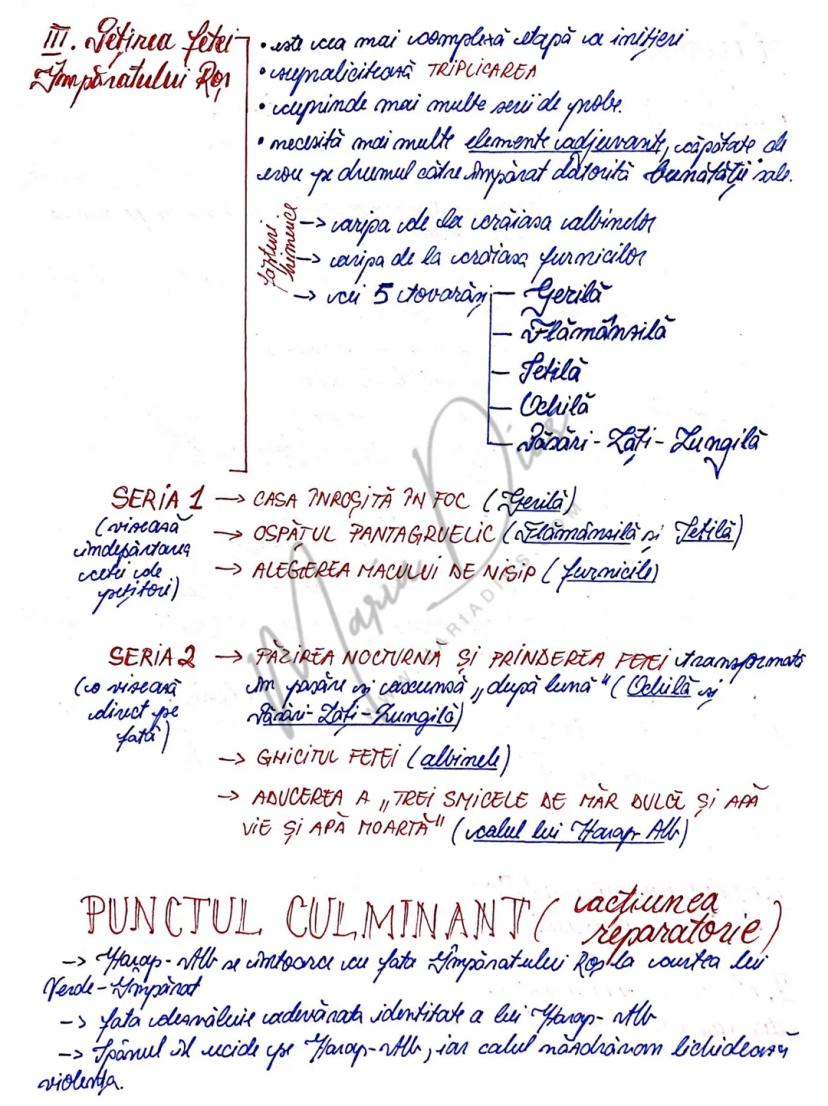 III. Pețirea fetei
Împăratului Roș
• este cea mai complexă etapă a inițierii
• supralicitează TRIPLICAREA
• cuprinde mai multe serii de probe.
• necesită mai multe elemente adjuvante, căpătate de
erou pe drumul către împărat datorită bunătății sale.
făpturi
himerice
→ aripa de la crăiasa albinelor
→ aripa de la crăiasa furnicilor
→ cei 5 tovarăși
— Gerilă
— Flămânzilă
— Setilă
— Ochilă
— Păsări-Lăți-Lungilă
SERIA 1 → CASA ÎNROȘITĂ ÎN FOC (Gerilă)
(vizează
îndepărtarea
cetei de
pețitori)
→ OSPĂȚUL PANTAGRUELIC (Flămânzilă și Setilă)
→ ALEGEREA MACULUI DE NISIP (furnicile)
SERIA 2 → PĂZIREA NOCTURNĂ ȘI PRINDEREA FETEI transformată
(o vizează
direct pe
fată)
în pasăre și ascunsă „după lună" (Ochilă și
Păsări-Lăți-Lungilă)
→ GHICITUL FETEI (albinele)
→ ADUCEREA A „TREI SMICELE DE MĂR DULCE ȘI APĂ
VIE ȘI APĂ MOARTĂ" (calul lui Harap-Alb)
PUNCTUL CULMINANT (acțiunea
reparatorie)
→ Harap-Alb se întoarce cu fata Împăratului Roș la curtea lui
Verde-Împărat
→ fata dezvăluie adevărata identitate a lui Harap-Alb
→ Spânul îl ucide pe Harap-Alb, iar calul năzdrăvan lichidează
violența.
Maria Dias